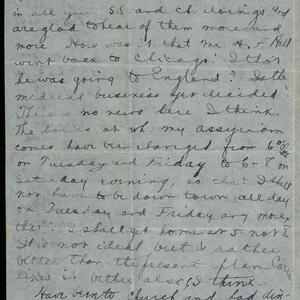 in all you S.S. and Ch. doings and
are glad to hear of them more and
more. How was it that Mr. H. F. Hall
went back to Chicago? I tho't
he was going to England? Is the
medical business yet decided?
There is no news here I think.
The hours at wh. my
comes have been changed from 6
on Tuesday and Friday to 6-8 on
Saturday evening, so that I shall
not have to be down town all day
on Tuesday and Friday any more
that I shall get home at 5 not 8
It is not ideal but is rather
better than the present plan. Carrie
likes it better also I think.
Have been to church and had din